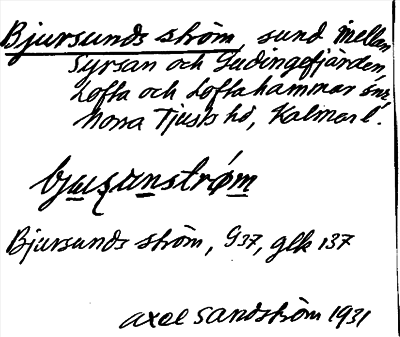 Bjursunds ström, sund mellan
Syrsan och Gudingefjärden,
Lofta och Loftahammar snr.
Norra Tjusts hd, Kalmar l.
bjusunström
Bjursunds ström, G37, glk 137
Axel Sandström 1931